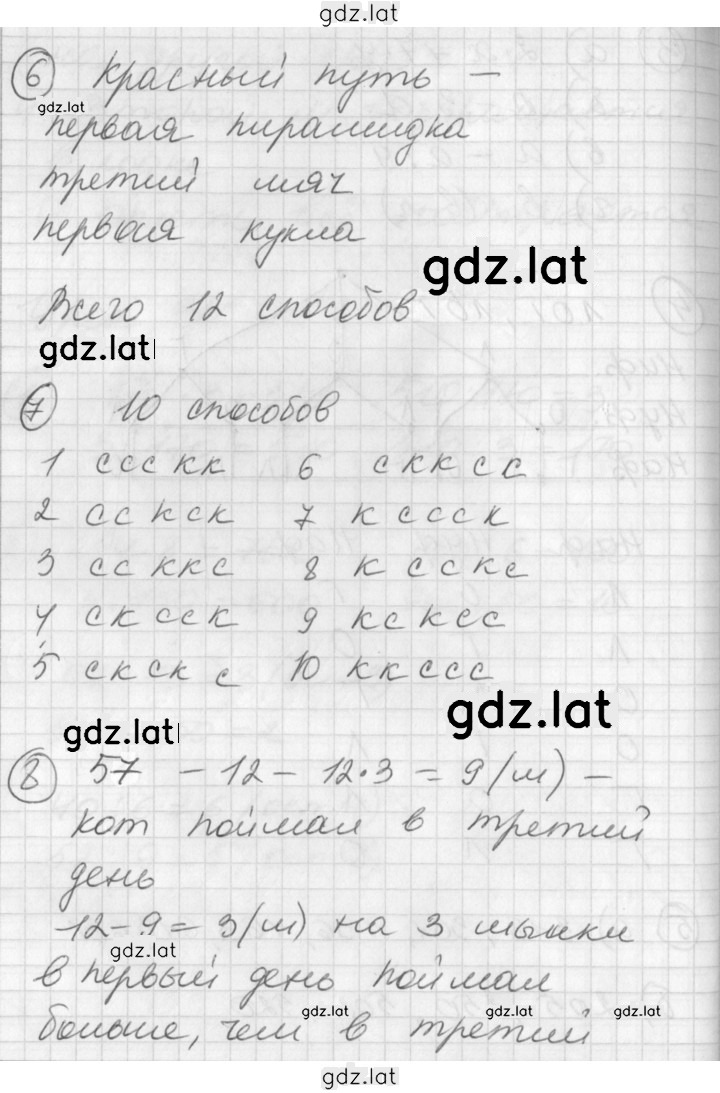 gdz.lat
6 Красный путь –
gdz.lat
первая пирамидка
третий мяч
первая кукла
gdz.lat
Всего 12 способов
gdz.lat
7 10 способов
1 ссскк 6 скксс
2 сскск 7 кссск
3 ссккс 8 ксскс
4 сксск 9 кскcс
5 скскс 10 ккссс
gdz.lat
gdz.lat
8 57 – 12 – 12·3 = 9 (м) –
кот поймал в третий
день
12 – 9 = 3 (м) на 3 мышки
gdz.lat
в первый день поймал
gdz.lat gdz.lat
больше, чем в третий
gdz.lat